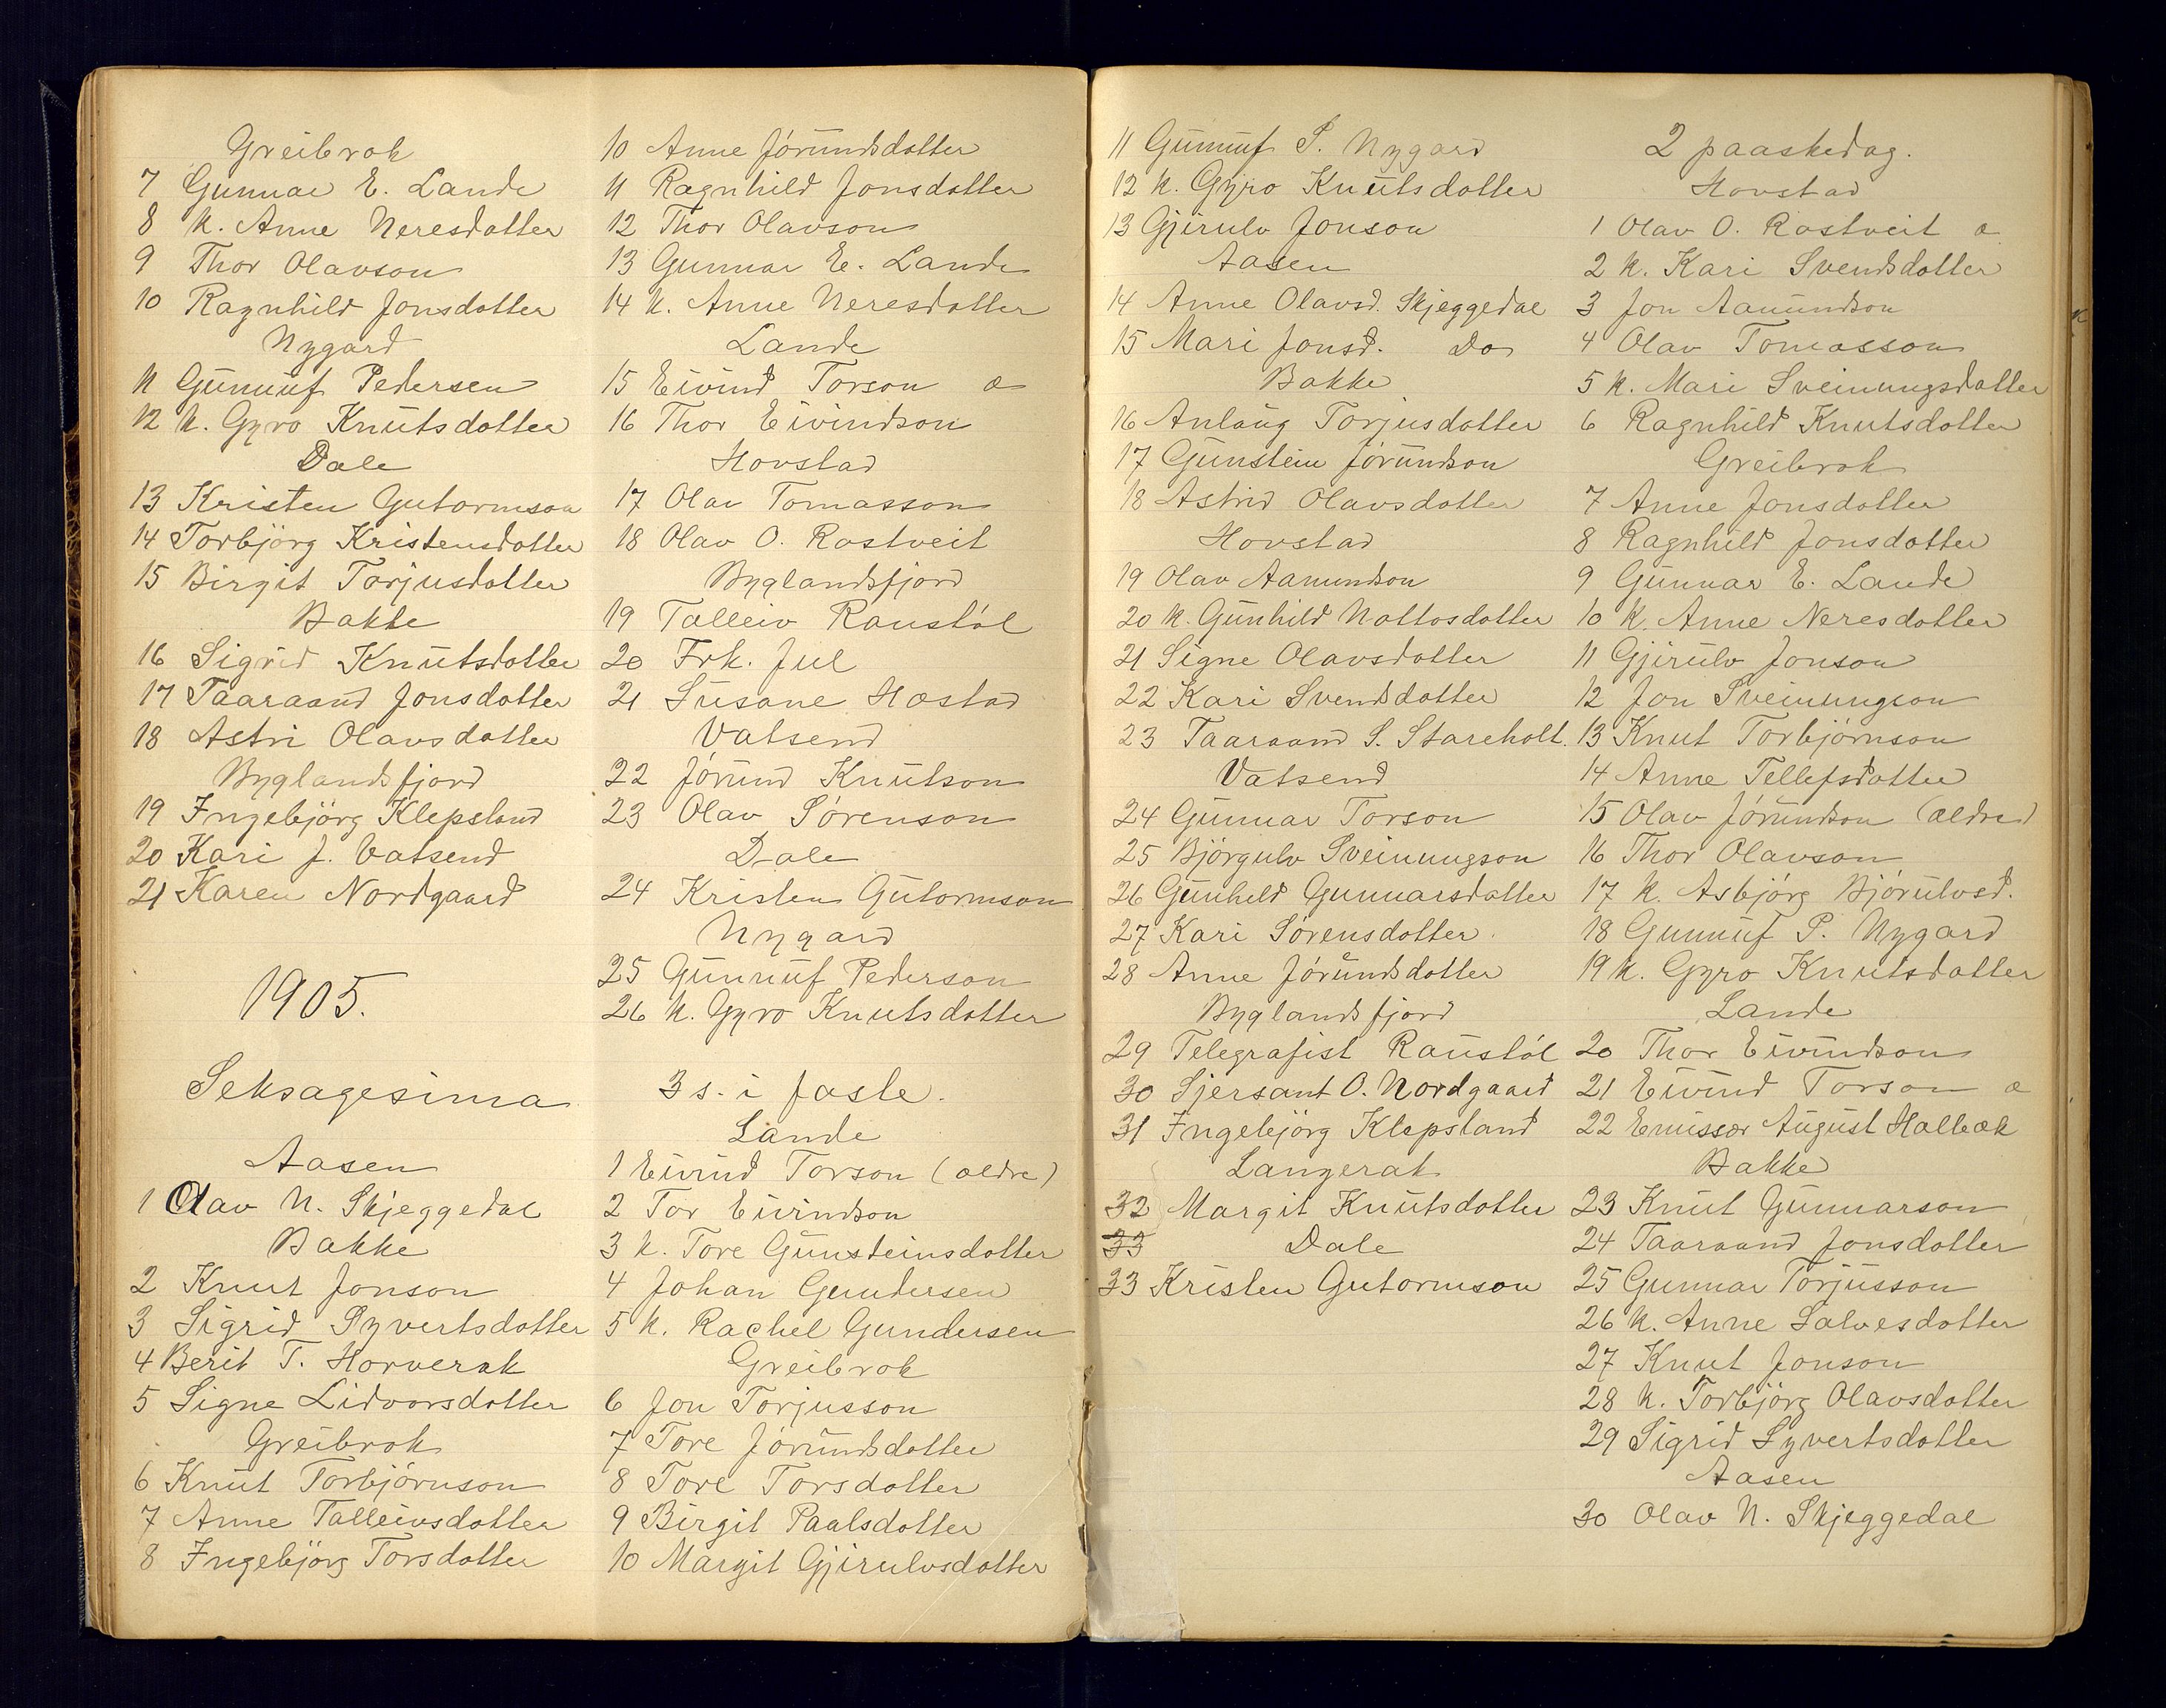 Greibrok
7 Gunnar E. Lande
8 k. Anne Neresdotter
9 Thor Olavson
10 Ragnhild Jonsdotter
Nygard
11 Gunnuf Pedersen
12 k. Gyro Knutsdotter
Dale
13 Kristen Gutormson
14 Torbjörg Kristensdotter
15 Birgit Torjusdotter
Bakke
16 Sigrid Knutsdotter
17 Taaraand Jonsdotter
18 Astri Olavsdotter
Byglandsfjord
19 Ingebjörg Klepsland
20 Kari J. Vatsend
21 Karen Nordgaard
1905.
Seksagesima
Aasen
1 Olav N. Skjeggedal
Bakke
2 Knut Jonson
3 Sigrid Syvertsdotter
4 Berit T. Horverak
5 Signe Lidvorsdotter
Greibrok
6 Knut Torbjörnson
7 Anne Talleivsdotter
8 Ingebjörg Torsdotter
10 Anne Jórundsdotter
11 Ragnhild Jonsdotter
12 Thor Olavson
13 Gunnar E. Lande
14 k. Anne Neresdotter
Lande
15 Eivind Torson æ
16 Thor Eivindson
Hovstad
17 Olav Tomasson
18 Olav O. Rostveit
Byglandsfjord
19 Talleiv Raustól
20 Frk. Jul
21 Susane Hostad
Vatsend
22 Jórund Knutson
23 Olav Sórenson
Dale
24 Kristen Gutormson
Nygard
25 Gunnuf Pederson
26 k. Gyro Knutsdotter
3 s. i faste.
Lande
1 Eivind Torson (ældre)
2 Tor Eivindson
3 k. Tore Gunsteinsdotter
4 Johan Gundersen
5 k. Rachel Gundersen
Greibrok
6 Jon Torjusson
7 Tore Jórundsdotter
8 Tore Torsdotter
9 Birgit Paalsdotter
10 Margit Gjirulvsdotter
11 Gunnuf P. Nygard
12 k. Gyro Knutsdotter
13 Gjirulv Jonson
Aasen
14 Anne Olavsd. Skjeggedal
15 Mari Jonsd. Do
Bakke
16 Anlaug Torjusdotter
17 Gunstein Jórundson
18 Astrid Olavsdotter
Hovstad
19 Olav Aamundson
20 k. Gunhild Nottosdotter
21 Signe Olavsdotter
22 Kari Svendsdotter
23 Taaraand S. Stareholt.
Vatsend
24 Gunnar Torson
25 Björgulv Sveinungson
26 Gunheld Gunnarsdotter
27 Kari Sórensdotter.
28 Anne Jórundsdotter
Byglandsfjord
29 Telegrafist Raustól
30 Sjersant O. Nordgaard
31 Ingebjörg Klepsland
Langerak
32 Margit Knutsdotter
33 Dale
33 Kristen Gutormson
2 paaskedag.
Hovstad
1 Olav O. Rostveit æ
2 k. Kari Svendsdotter
3 Jon Aamundson
4 Olav Tomasson
5 k. Mari Sveinungsdotter
6 Ragnhild Knutsdotter
Greibrok
7 Anne Jonsdotter
8 Ragnhild Jonsdotter
9 Gunnar E. Lande
10 k. Anne Neresdotter
11 Gjirulv Jonson
12 Jon Sveinungson
13 Knut Torbjörnson
14 Anne Tellefsdotter
15 Olav Jórundson (ældre)
16 Thor Olavson
17 k. Asbjörg Bjórulvsd.
18 Gunnuf P. Nygard
19 k. Gyro Knutsdotter
Lande
20 Thor Eivindson
21 Eivind Torson æ
22 Emissær August Halbæk
Bakke
23 Knut Gunnarson
24 Taaraand Jonsdotter
25 Gunnar Torjusson
26 k. Anne Salvesdotter
27 Knut Jonson
28 k. Torbjörg Olavsdotter
29 Sigrid Syvertsdotter
Aasen
30 Olav N. Skjeggedal